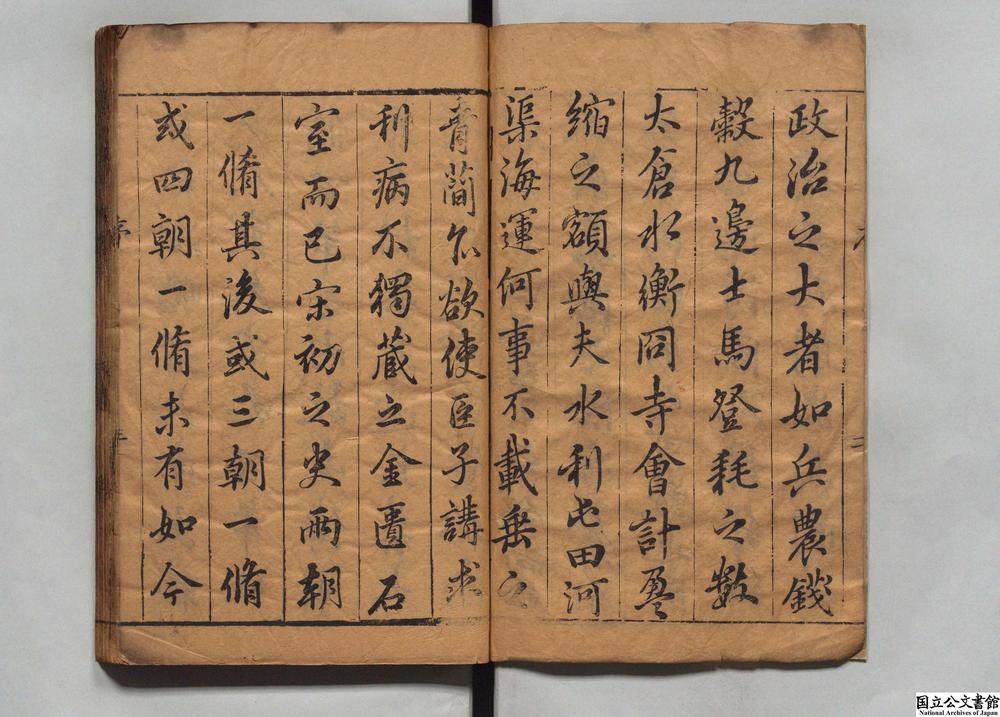 政治之大者如兵農錢
穀九邊士馬登耗之數
太倉水衡冏寺會計盈
縮之額與夫水利屯田河
渠海運何事不載垂之
青簡亦欲使臣子講求
利病不獨藏之金匱石
室而已宋初之史兩朝
一脩其後或三朝一脩
或四朝一脩未有如今
序
国立公文書館
National Archives of Japan